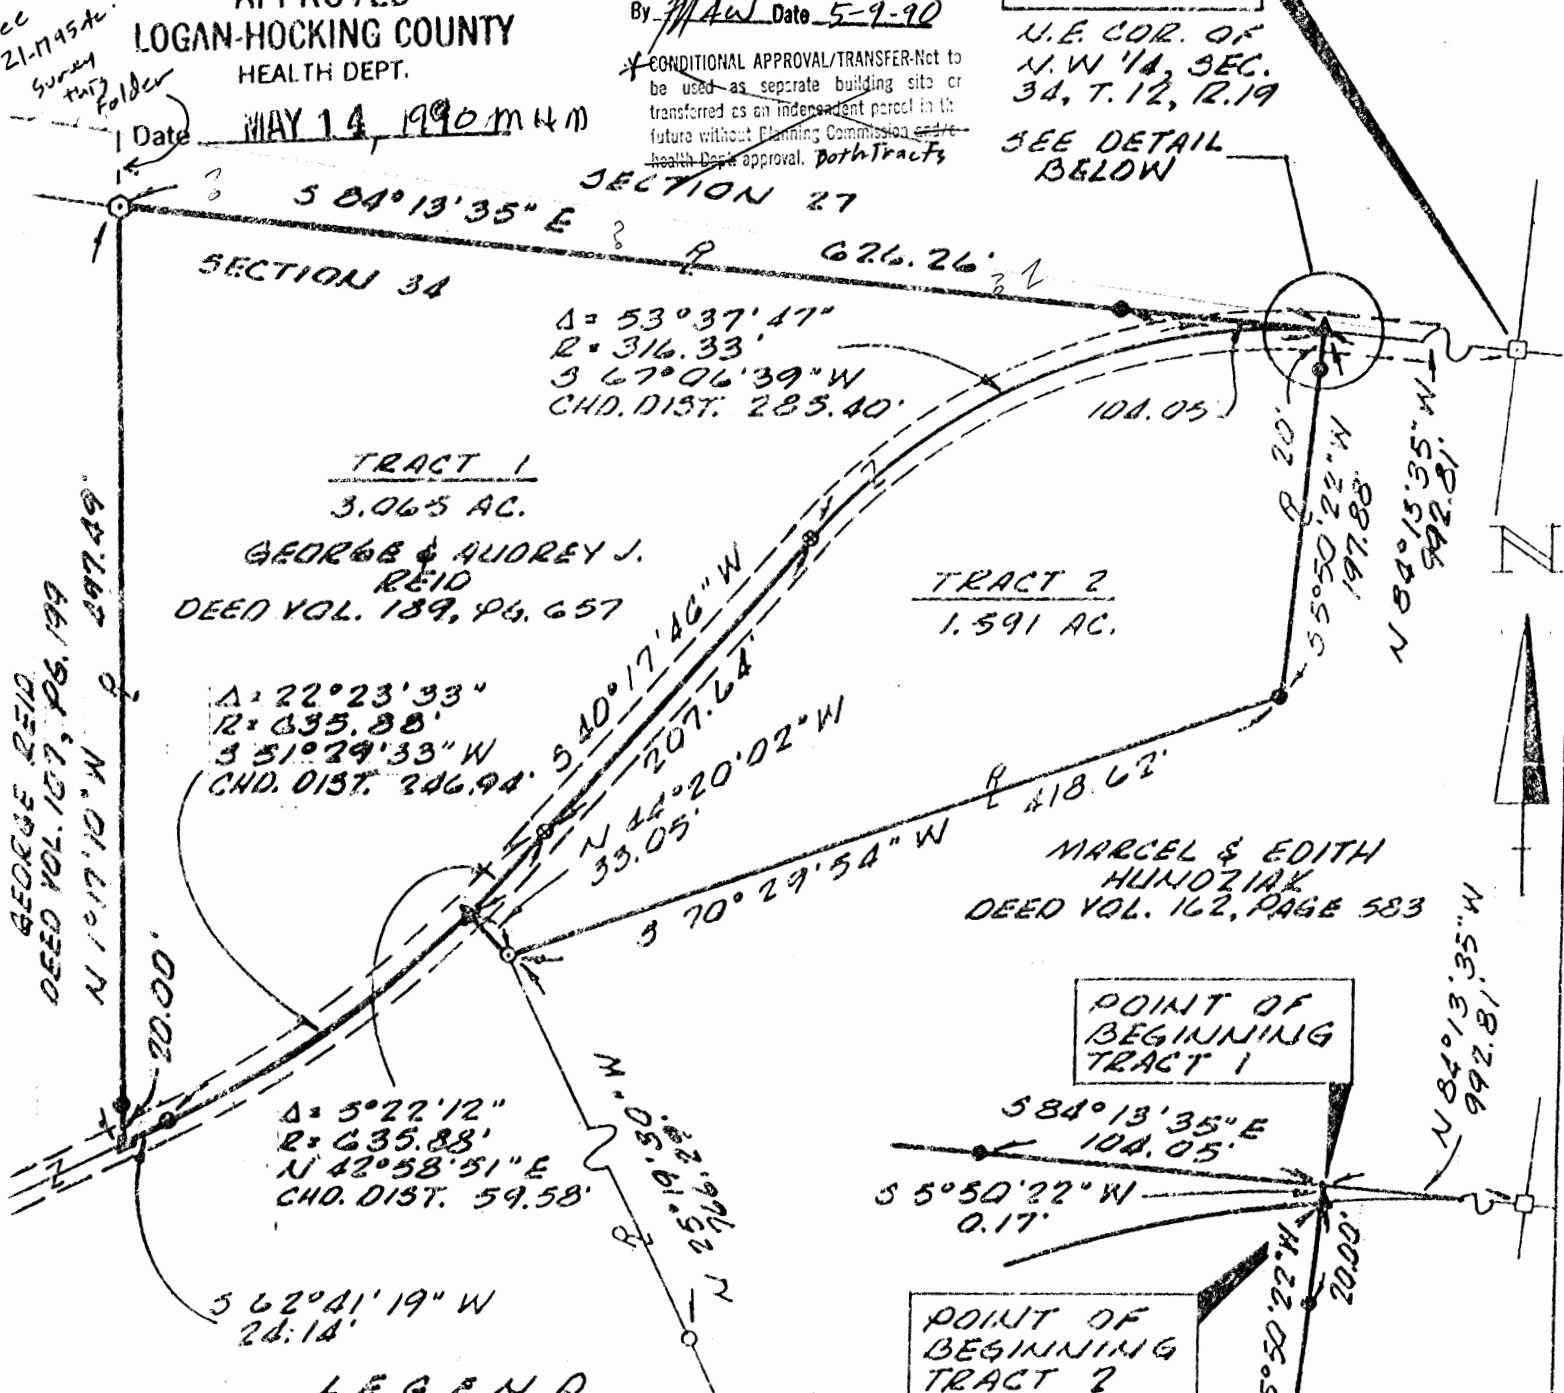 21-1795 Ac.
Survey
this
Folder
APPROVED
LOGAN-HOCKING COUNTY
HEALTH DEPT.
Date MAY 14, 1990 MHM
By MAW Date 5-9-90
CONDITIONAL APPROVAL/TRANSFER-Not to
be used as separate building site or
transferred as an independent parcel in the
future without Planning Commission and/or
health Dept. approval. Both Tracts
N.E. COR. OF
N.W 1/4, SEC.
34, T.12, R.19
SEE DETAIL
BELOW
SECTION 27
S 84°13'35" E
626.26'
SECTION 34
Δ= 53°37'47"
R= 316.33'
S 67°06'39"W
CHD. DIST. 285.40'
104.05'
20'
S 5°50'22"W
197.88'
N 84°13'35"W
992.81'
N
TRACT 1
3.065 AC.
GEORGE & AUDREY J.
REID
DEED VOL. 189, PG. 657
TRACT 2
1.591 AC.
GEORGE REID
DEED VOL. 107, PG. 199
N 1°17'10"W
497.49'
Δ= 22°23'33"
R= 635.88'
S 51°29'33" W
CHD. DIST. 246.94'
S 40°17'46" W
207.64'
N 44°20'02" W
33.05'
S 70°29'54" W
418.62'
MARCEL & EDITH
HUNDZIAK
DEED VOL. 162, PAGE 583
20.00'
Δ= 5°22'12"
R= 635.88'
N 42°58'51" E
CHD. DIST. 59.58'
N 25°19'30" W
S 62°41'19" W
24.14'
POINT OF
BEGINNING
TRACT 1
S 84°13'35" E
104.05'
S 5°50'22" W
0.17'
N 84°13'35"W
992.81'
20.00'
5°50'22"W
POINT OF
BEGINNING
TRACT 2
LEGEND